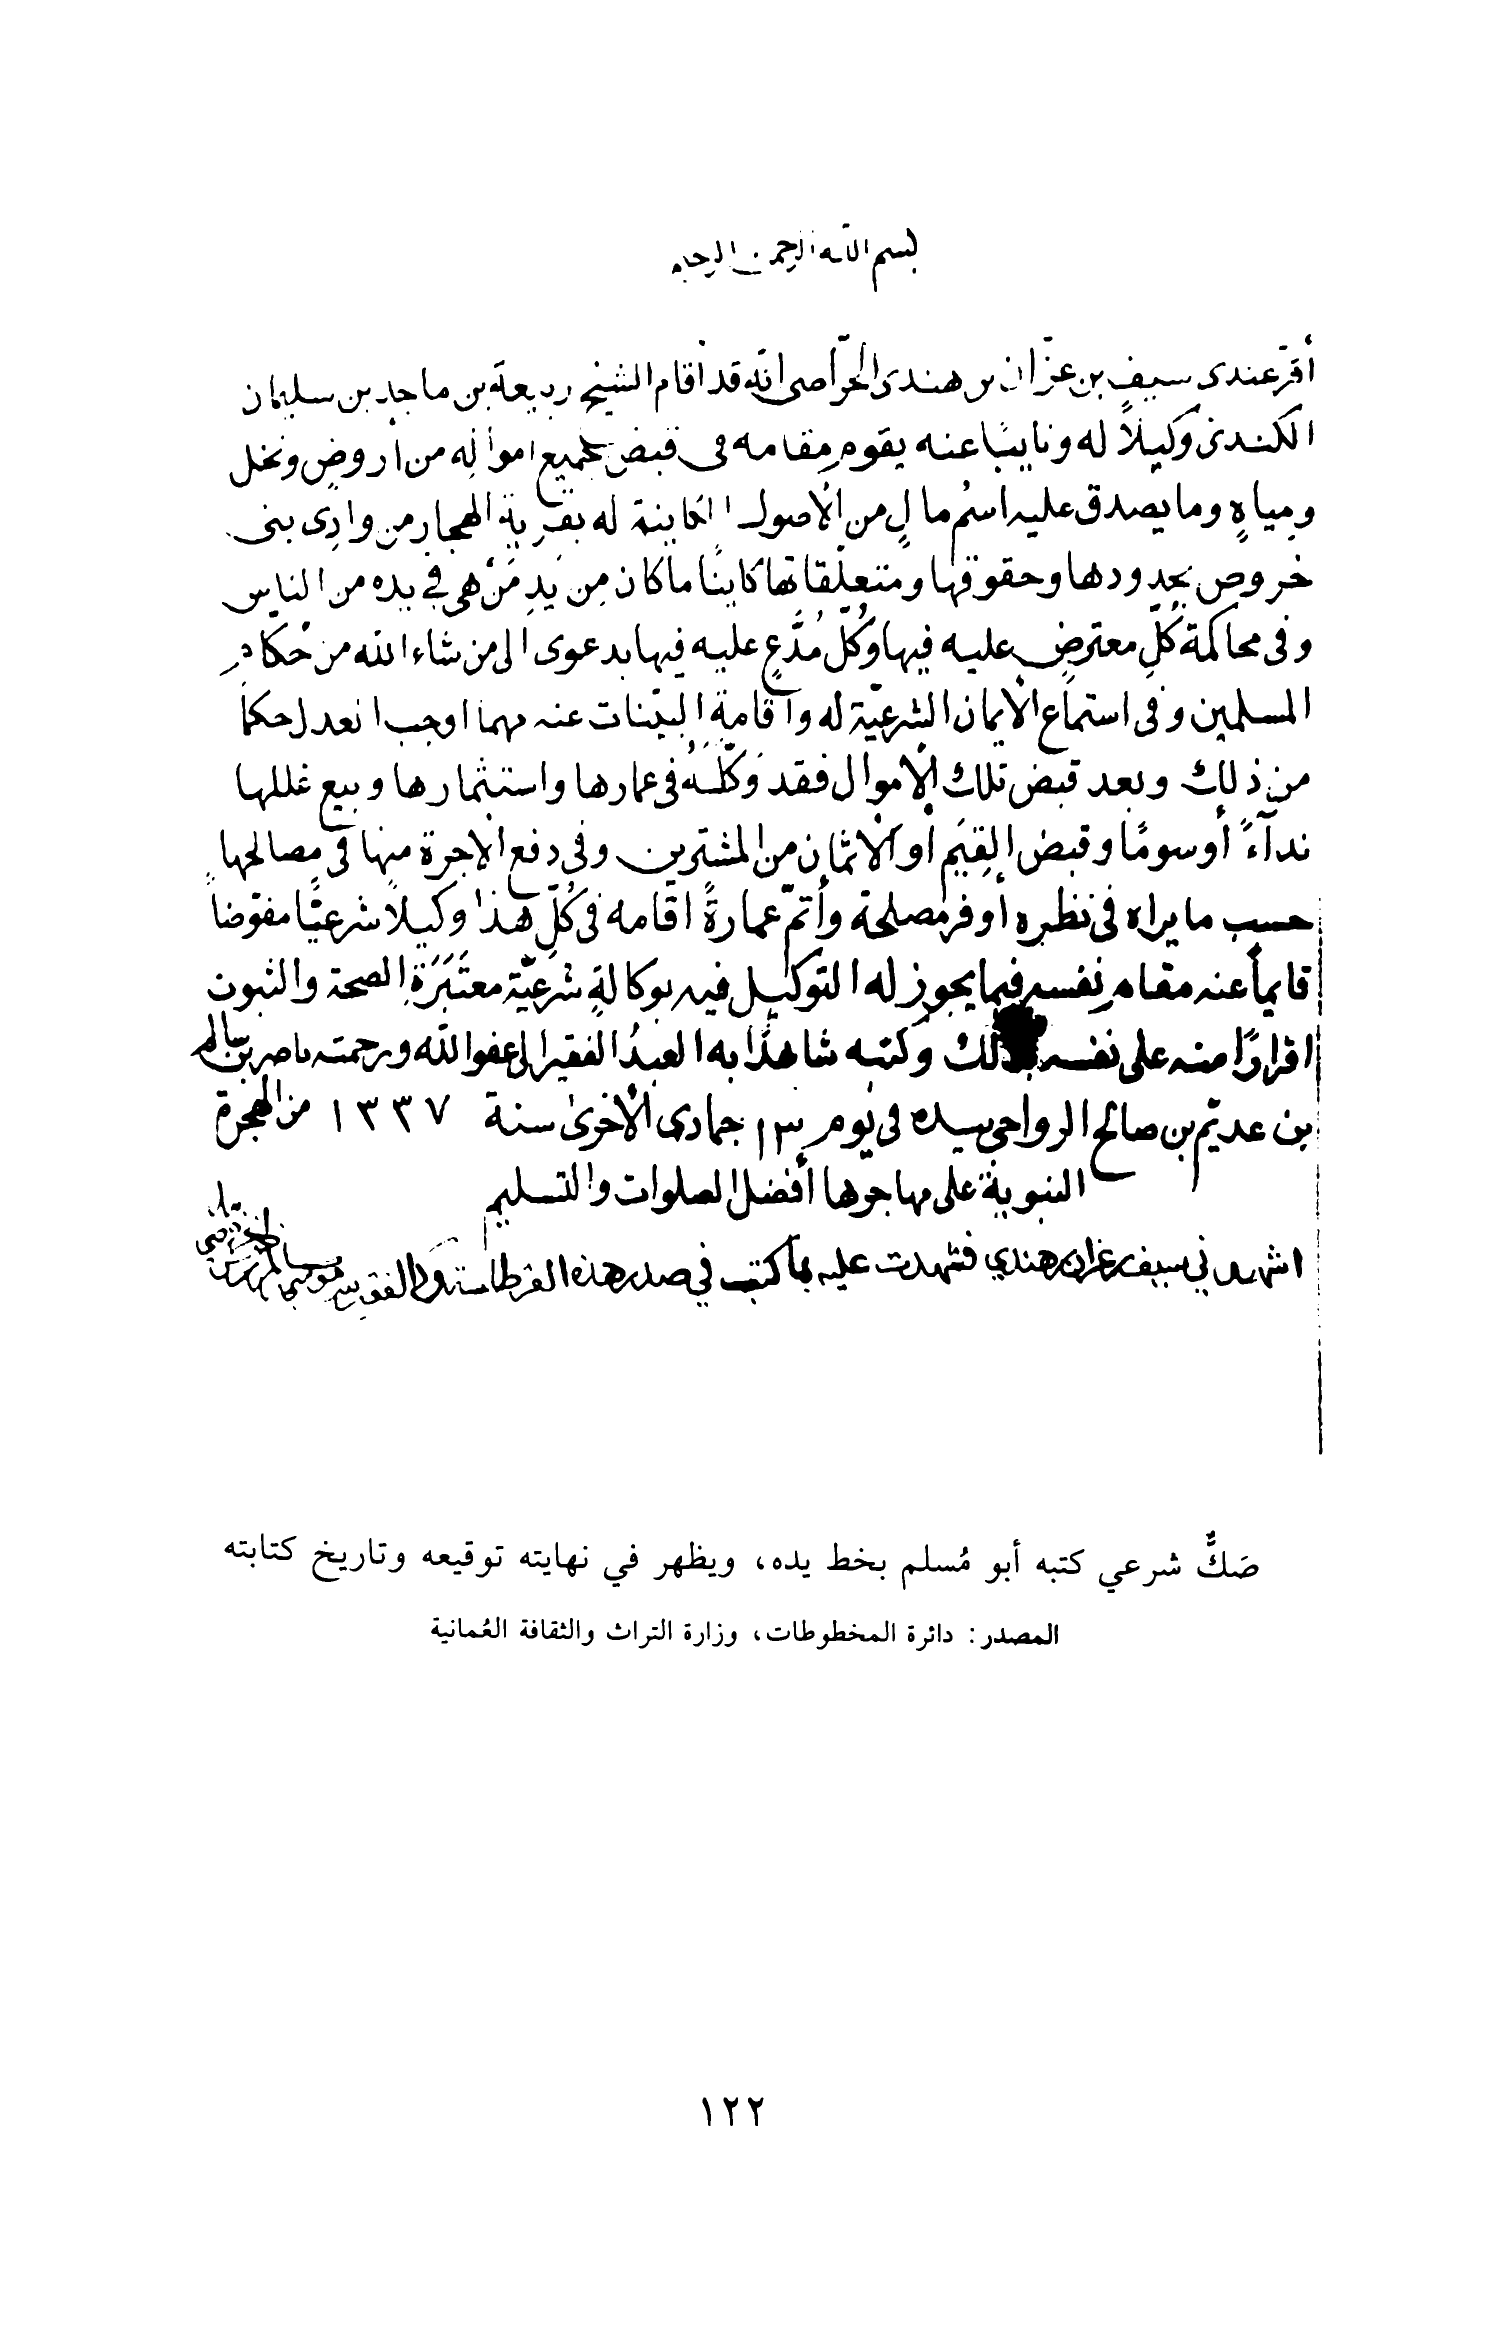 بسم الله الرحمن الرحيم
أقرّ عندى سيف بن عزّان بن هندى الخرّاصى انّه قد أقام الشيخ ربيعة بن ماجد بن سليمان
الكندىّ وكيلاً له ونايبًا عنه يقوم مقامه فى قبض جميع امواله من اروضٍ ونخل
ومياهٍ وما يصدق عليه اسمُ مالٍ من الأصول الكاينة له بقرية الهجار من وادى بنى
خروص بحدودها وحقوقها ومتعلّقاتها كاينًا ما كان مِن يَدِ مَنْ هى فى يده من الناس
وفى محاكمة كُلّ معترضٍ عليه فيها وكُلّ مُدَّعٍ عليه فيها بدعوى الى من شاء الله من حُكّام
المسلمين وفى استماع الأيمان الشرعيّة له واقامة البيّنات عنه مهما اوجب العدل حكمًا
من ذلك وبعد قبض تلك الأموال فقد وَكّلَهُ فى عمارها واستثمارها وبيع غللها
ندآءً أوسومًا وقبض القِيَم أو الأثمان من المشترين وفى دفع الاجرة منها فى مصالحها
حسب ما يراه فى نظره أوفر مصلحة وأتمّ عمارةً اقامه فى كُلّ هذا وكيلاً شرعيًّا مفوّضاً
قايماً عنه مقام نفسه فيما يجوز له التوكيل فيه بوكالةٍ شرعيّة معتَبَرَة الصحة والثبوت
اقرارًا منه على نفسه بذلك وكتبه شاهدًا به العبدُ الفقير الى عفو الله ورحمته ناصر بن سالم
بن عديّم بن صالح الرواحى بيده فى يوم ١٣ جمادى الأخرىٰ سنة ١٣٣٧ من الهجرة
النبوية على مهاجرها أفضل الصلوات والتسليم
اشهدني سيف بن عزان بن هندي فشهدت عليه بما كتب في صدر هذه القرطاسة وانا الفقير
صَكٌّ شرعي كتبه أبو مُسلم بخط يده، ويظهر في نهايته توقيعه وتاريخ كتابته
المصدر: دائرة المخطوطات، وزارة التراث والثقافة العُمانية
١٢٢